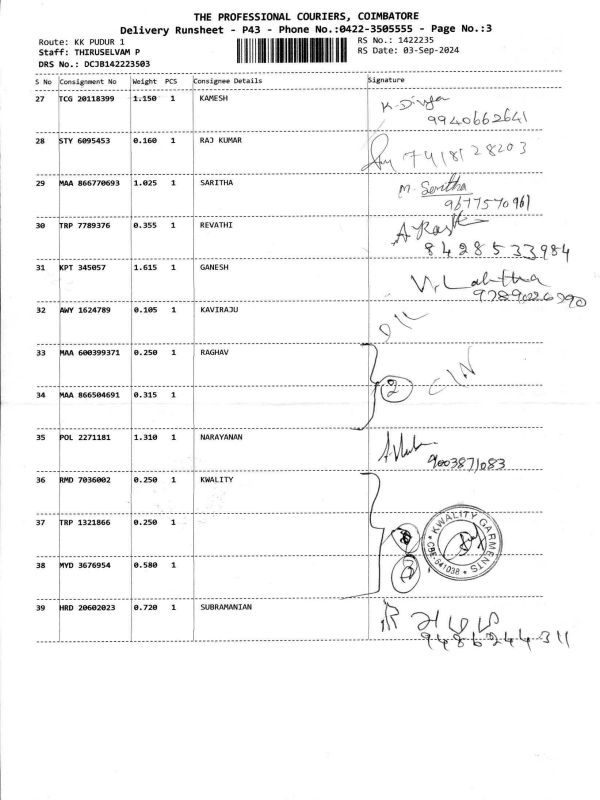 THE PROFESSIONAL COURIERS, COIMBATORE
Delivery Runsheet - P43 - Phone No.:0422-3505555 - Page No.:3
Route: KK PUDUR 1
RS No.: 1422235
Staff: THIRUSELVAM P
RS Date: 03-Sep-2024
DRS No.: DCJB142223503
S No Consignment No Weight PCS Consignee Details Signature
27 TCG 20118399 1.150 1 KAMESH K. Divya
9940662641
28 STY 6095453 0.160 1 RAJ KUMAR 7418128203
29 MAA 866770693 1.025 1 SARITHA M. Saritha
9677570961
30 TRP 7789376 0.355 1 REVATHI
8428533984
31 KPT 345057 1.615 1 GANESH V. Lalitha
9789026790
32 AWY 1624789 0.105 1 KAVIRAJU
33 MAA 600399371 0.250 1 RAGHAV
2
34 MAA 866504691 0.315 1
35 POL 2271181 1.310 1 NARAYANAN
9003871083
36 RMD 7036002 0.250 1 KWALITY
37 TRP 1321866 0.250 1
* KWALITY GARMENTS * CBE-641038
38 MYD 3676954 0.580 1
39 HRD 20602023 0.720 1 SUBRAMANIAN
9486244311